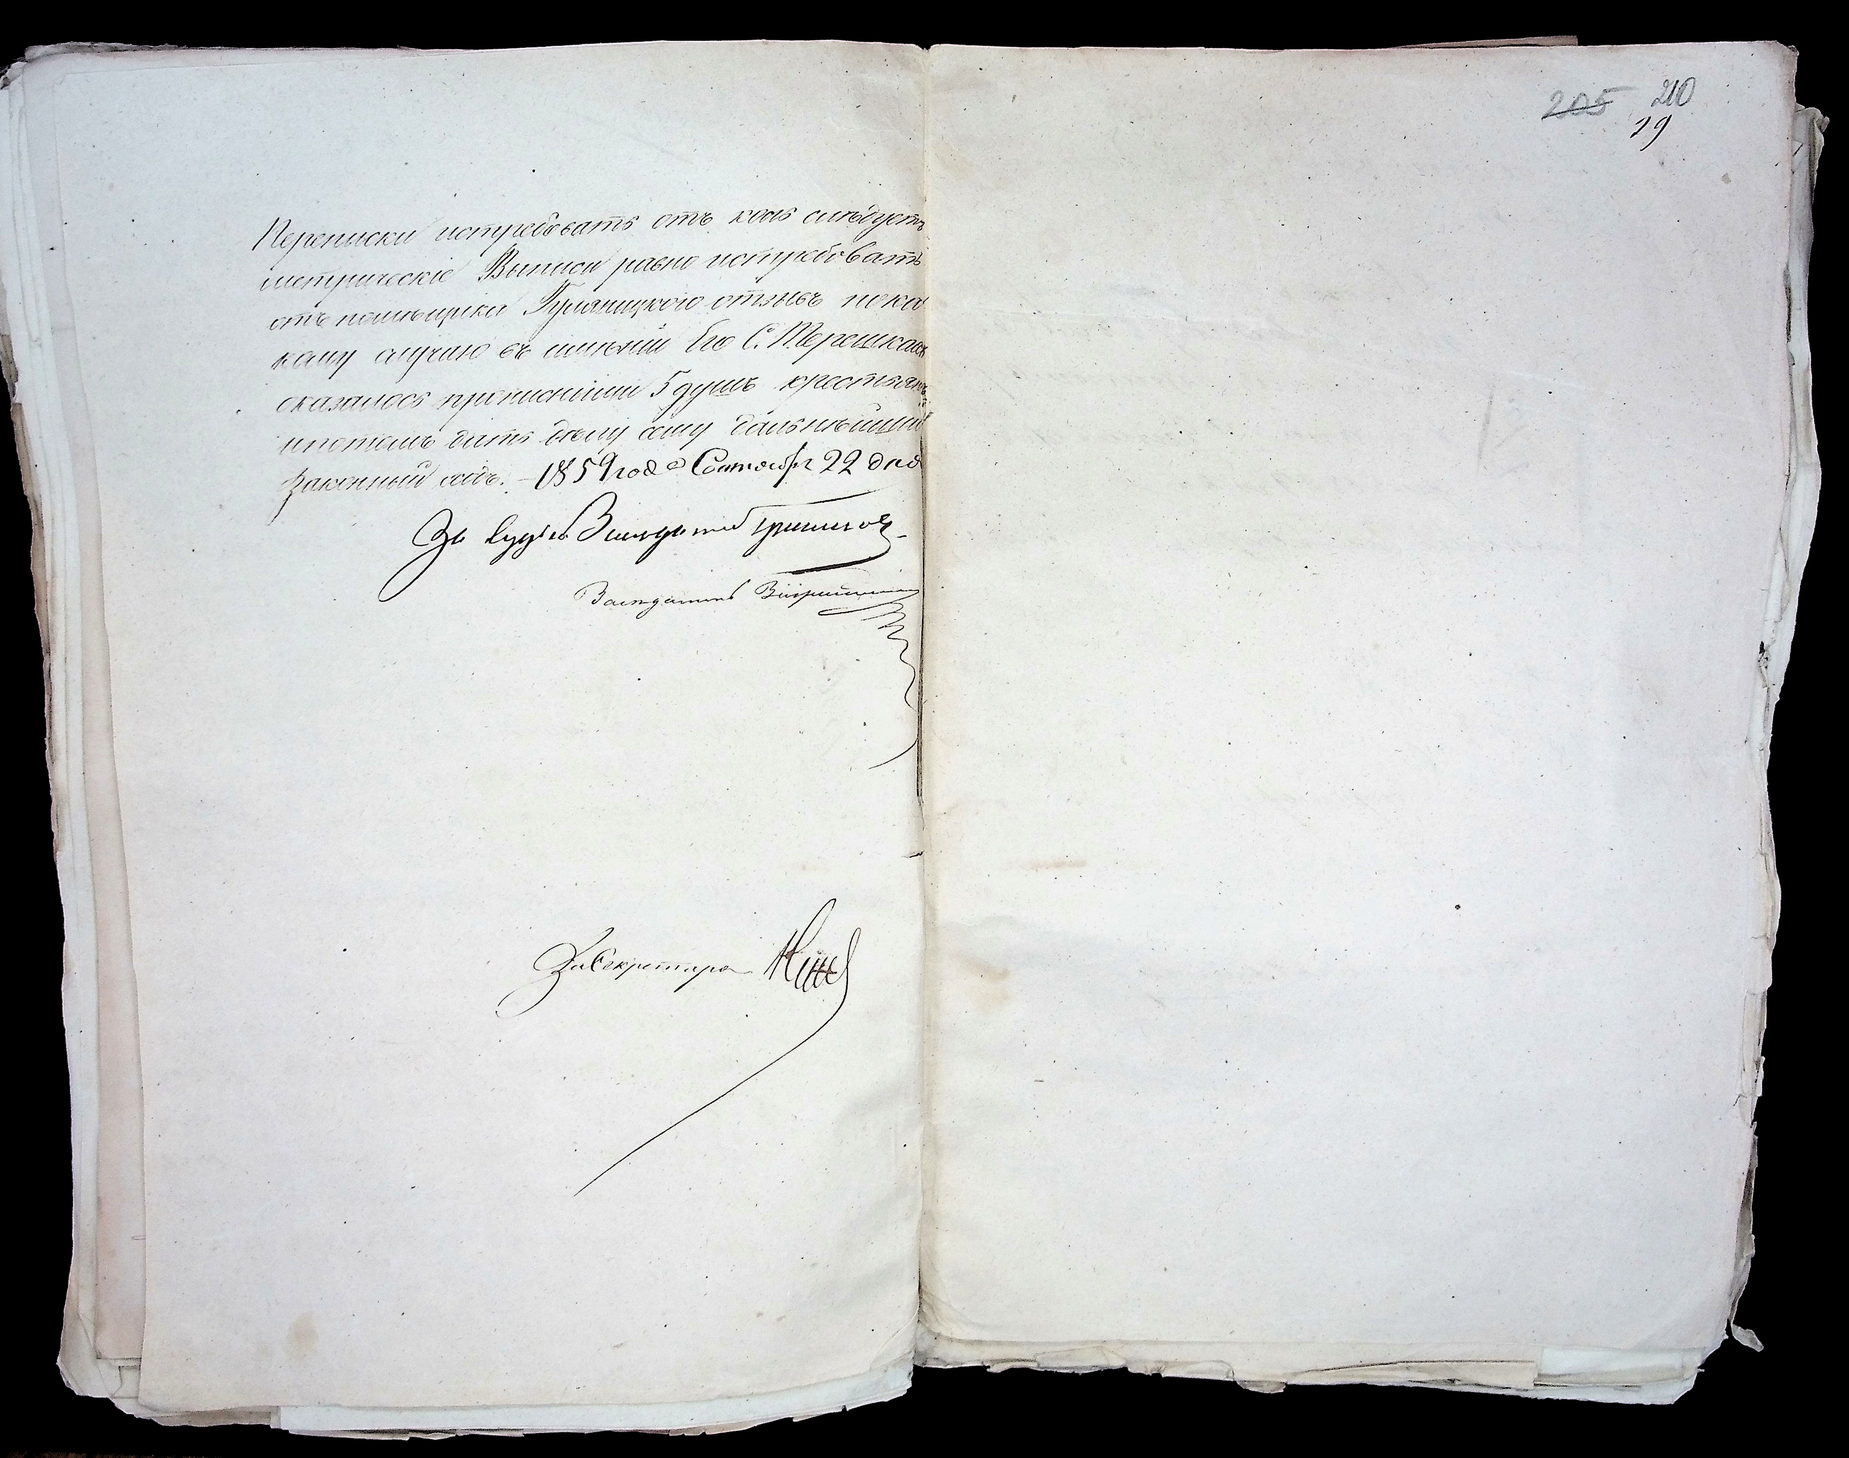 Переписки истребовать отъ коль слѣдуетъ
метрическіе Выписи равно истребовать
отъ помѣщика Гуляницкого отзывъ по ка
кому случаю въ имѣніи Его С. Терешкахъ
оказалось прописными 5 душъ крестьянъ
и потомъ дать дѣлу сему дальнѣйшій
Законный ходъ. – 1859 года Сентября 22 дня
За Судью Засѣдатель
Засѣдатель
За Секретаря
205 210
19